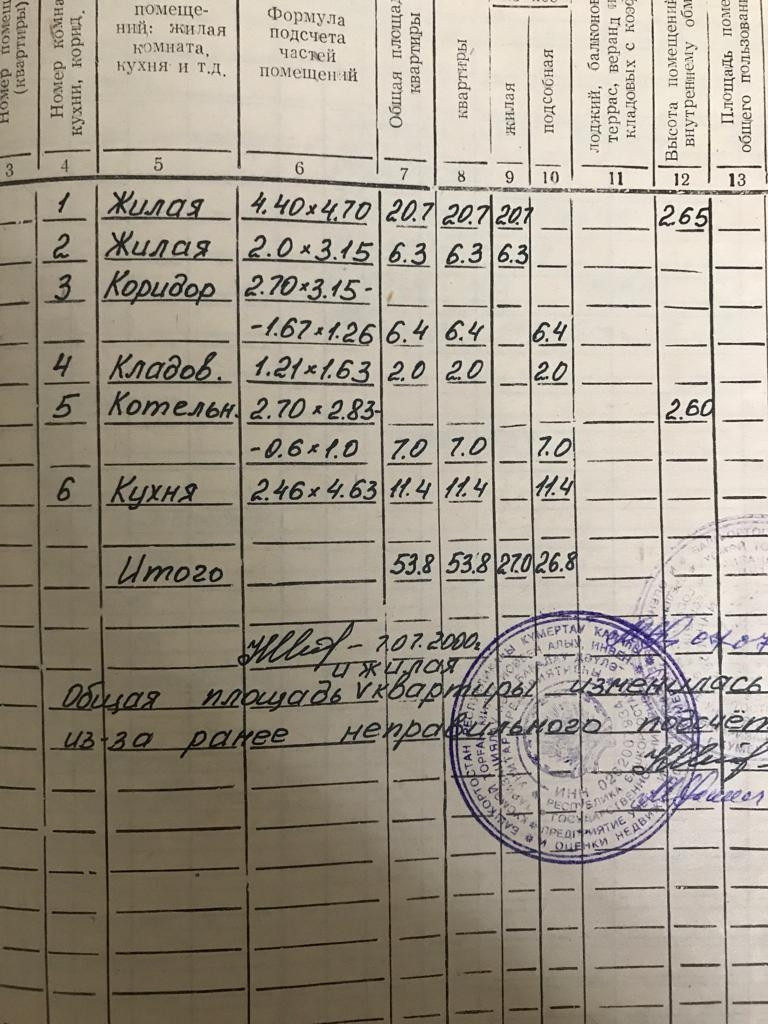 Номер
(квартиры)
Номер
кухни, корид.
помеще-
ний: жилая
комната,
кухня и т.д.
Формула
подсчета
частей
помещений
Общая
квартиры
квартиры
жилая
подсобная
лоджий,
террас, веранд
кладовых с
Высота
внутреннему
Площадь
общего
3 4 5 6 7 8 9 10 11 12 13
1 Жилая 4.40×4.70 20.7 20.7 20.7 2.65
2 Жилая 2.0×3.15 6.3 6.3 6.3
3 Коридор 2.70×3.15-
-1.67×1.26 6.4 6.4 6.4
4 Кладов. 1.21×1.63 2.0 2.0 2.0
5 Котельн. 2.70×2.83- 2.60
-0.6×1.0 7.0 7.0 7.0
6 Кухня 2.46×4.63 11.4 11.4 11.4
Итого 53.8 53.8 27.0 26.8
- 7.07.2000г.
и жилая
Общая площадь V квартиры изменилась
из-за ранее неправильного подсчёт
БАШКОРТОСТАН
КУМЕРТАУ
ИНН
РЕСПУБЛИКА
ГОСУДАРСТВЕННОЕ
ПРЕДПРИЯТИЕ
И ОЦЕНКИ